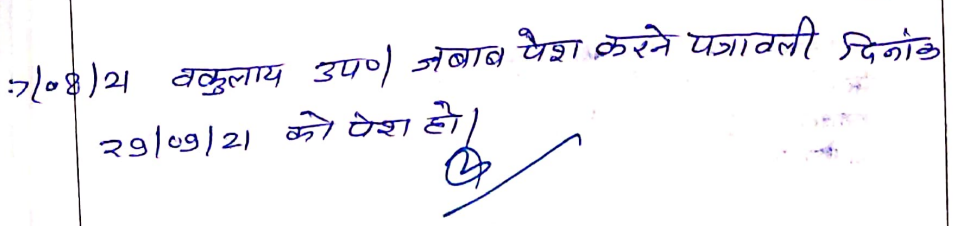 /08/21 वकुलाय उप०/ जबाब पेश करने पत्रावली दिनांक
29/09/21 को पेश हो/